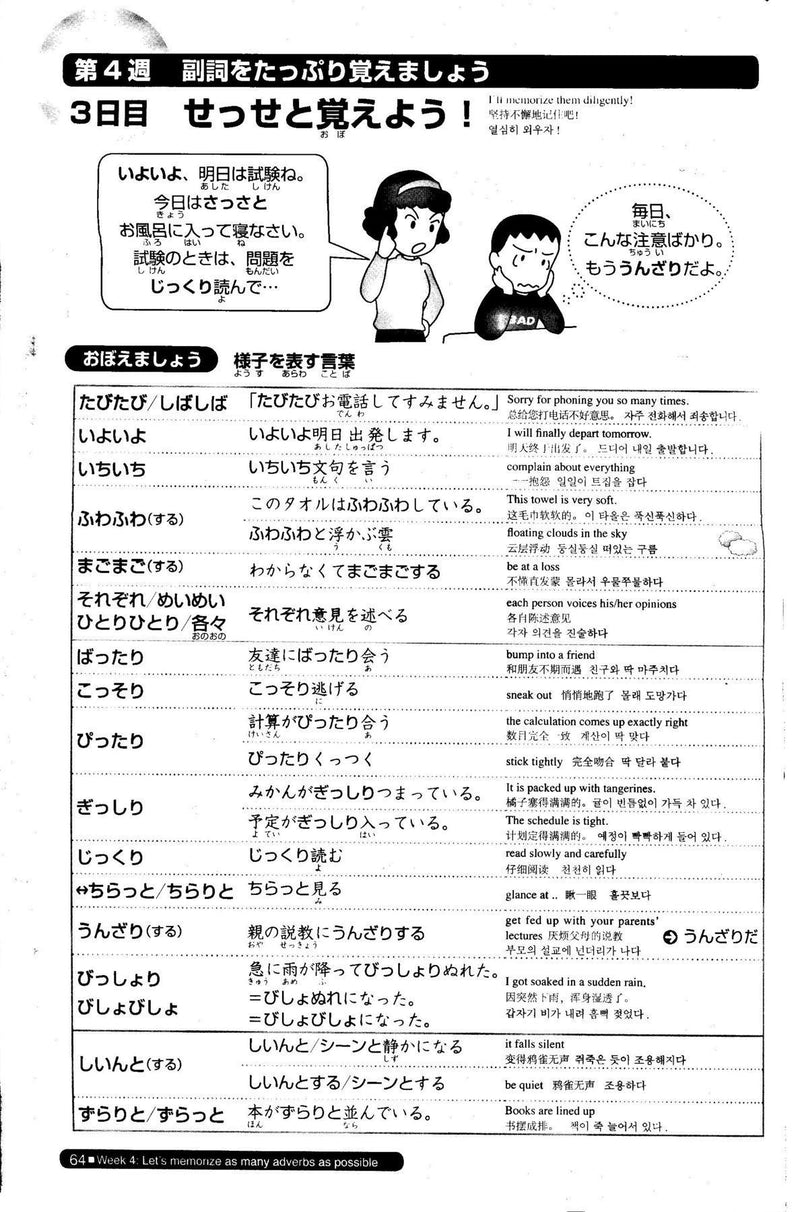 第４週　副詞をたっぷり覚えましょう
３日目　せっせと覚えよう！
おぼ
I'll memorize them diligently!
坚持不懈地记住吧!
열심히 외우자!
いよいよ、明日は試験ね。
あした　しけん
今日はさっさと
きょう
お風呂に入って寝なさい。
ふろ　はい　ね
試験のときは、問題を
しけん　もんだい
じっくり読んで…
よ
毎日、
まいにち
こんな注意ばかり。
ちゅうい
もううんざりだよ。
BAD
おぼえましょう　様子を表す言葉
ようす　あらわ　ことば
たびたび/しばしば　「たびたびお電話してすみません。」
でんわ
Sorry for phoning you so many times.
总给您打电话不好意思。 자주 전화해서 죄송합니다.
いよいよ　いよいよ明日出発します。
あしたしゅっぱつ
I will finally depart tomorrow.
明天终于出发了。 드디어 내일 출발합니다.
いちいち　いちいち文句を言う
もんく　い
complain about everything
一一抱怨 일일이 트집을 잡다
ふわふわ(する)　このタオルはふわふわしている。
This towel is very soft.
这毛巾软软的。 이 타올은 푹신푹신하다.
ふわふわと浮かぶ雲
う　くも
floating clouds in the sky
云层浮动 둥실둥실 떠있는 구름
まごまご(する)　わからなくてまごまごする
be at a loss
不懂直发蒙 몰라서 우물쭈물하다
それぞれ/めいめい
ひとりひとり/各々
おのおの
それぞれ意見を述べる
いけん　の
each person voices his/her opinions
各自陈述意见
각자 의견을 진술하다
ばったり　友達にばったり会う
ともだち　あ
bump into a friend
和朋友不期而遇 친구와 딱 마주치다
こっそり　こっそり逃げる
に
sneak out 悄悄地跑了 몰래 도망가다
ぴったり　計算がぴったり合う
けいさん　あ
the calculation comes up exactly right
数目完全一致 계산이 딱 맞다
ぴったりくっつく
stick tightly 完全吻合 딱 달라 붙다
ぎっしり　みかんがぎっしりつまっている。
It is packed up with tangerines.
橘子塞得满满的。귤이 빈틈없이 가득 차 있다.
予定がぎっしり入っている。
よてい　はい
The schedule is tight.
计划定得满满的。 예정이 빡빡하게 들어 있다.
じっくり　じっくり読む
よ
read slowly and carefully
仔细阅读 천천히 읽다
⇔ちらっと/ちらりと　ちらっと見る
み
glance at .. 瞅一眼 흘끗보다
うんざり(する)　親の説教にうんざりする
おや　せっきょう
get fed up with your parents'
lectures 厌烦父母的说教
부모의 설교에 넌더리가 나다
➲ うんざりだ
びっしょり
びしょびしょ
急に雨が降ってびっしょりぬれた。
きゅう　あめ　ふ
=びしょぬれになった。
=びしょびしょになった。
I got soaked in a sudden rain.
因突然下雨，浑身湿透了。
갑자기 비가 내려 흠뻑 젖었다.
しいんと(する)　しいんと/シーンと静かになる
しず
it falls silent
变得鸦雀无声 쥐죽은 듯이 조용해지다
しいんとする/シーンとする
be quiet 鸦雀无声 조용하다
ずらりと/ずらっと　本がずらりと並んでいる。
ほん　なら
Books are lined up
书摆成排。 책이 죽 늘어서 있다.
64■Week 4: Let's memorize as many adverbs as possible